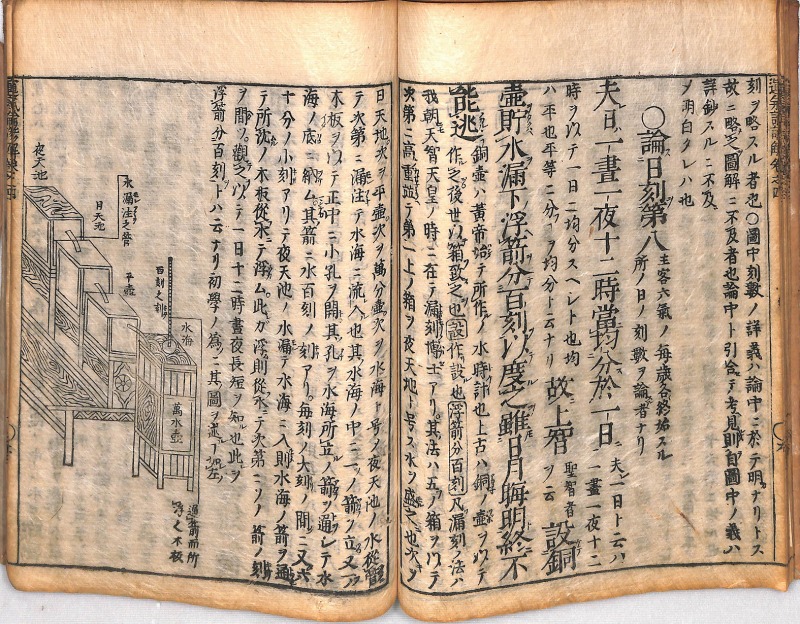 刻ヲ略スル者也〇圖中刻數ノ詳義ハ論中ニ於テ明ナリトス
故ニ略之圖解ニ不及者也論中ト引合テ考見則自圖中ノ義ハ
詳鈔スルニ不及
ヲノ明白クレハ也
〇論日刻第八 主客六氣ノ每歲各終始スル
所ノ日ノ刻數ヲ論者ナリ
夫日一晝一夜十二時當均分於一日 夫一日ト云ハ
一晝一夜十二
時ヲ以テ一日ニ均分スヘシト也均
ハ平也平等ニ分ツヲ均分ト云ナリ 故上智 聖智者
ヲ云 設銅
壺貯水漏下浮箭分百刻以度之雖日月晦明終不
能逃 銅壺ハ黃帝始テ所作ノ水時計也上古ハ銅ノ壺ヲ以テ
作之後世以箱致之也設作設也浮箭分百刻凡漏刻ノ法ハ
我朝天智天皇ノ時ニ在テ漏刻博士アリ其法ハ五ノ箱ヲ以テ
次第ニ高重臨テ第一上ノ箱ヲ夜天地ト号ス水ヲ盛之也次ヲ
日天地次ヲ平壺次ヲ萬分壺次ヲ水海ト号ノ夜天地ノ水從
テ次第ニ漏注テ水海ニ流入也其水海ノ中ニ一ノ箭ヲ立又一
木板ヲ以テ正中ニ小孔ヲ開其孔ヲ水海所立ノ箭ヲ通レテ水
海ノ底ニ納ム其箭ニ水百刻ノ刻アリ每刻ノ大刻ノ間ニ又六
十分ノ小刻アリテ夜天地ノ水漏テ水海ニ入則水海ノ箭ヲ通
テ所沈ノ木板從水テ浮ム此カ浮則從水テ次第ニソノ箭ノ刻
ヲ間ヲ觀之以テ一日十二時晝夜長短ヲ知也此ヲ
浮箭分百刻トハ云ナリ初學ノ爲ニ其圖ヲ
水漏注之管
夜天地
日天地
平壺
百刻之刻
水海
萬水壺
通箭而所
浮之木板